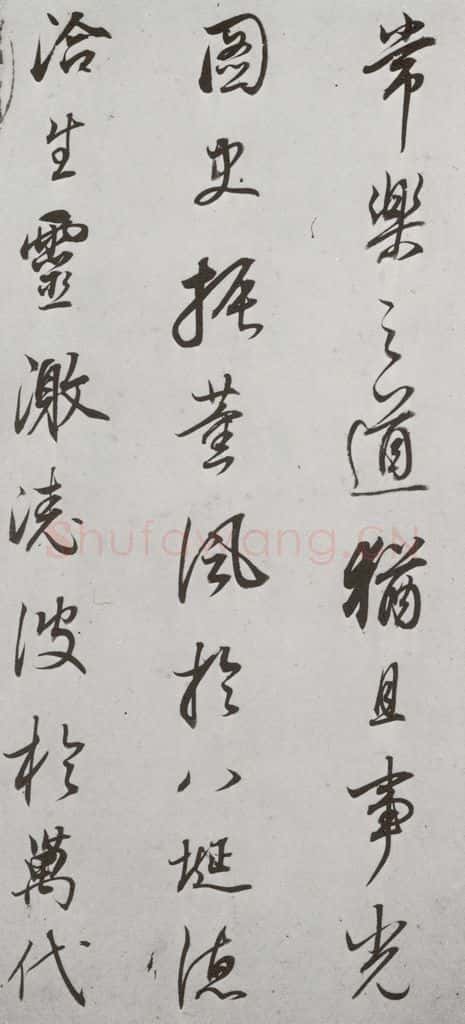 常樂之道猶且事光
圖史振薰風於八埏德
洽生靈激清波於萬代
Shufawang.CN